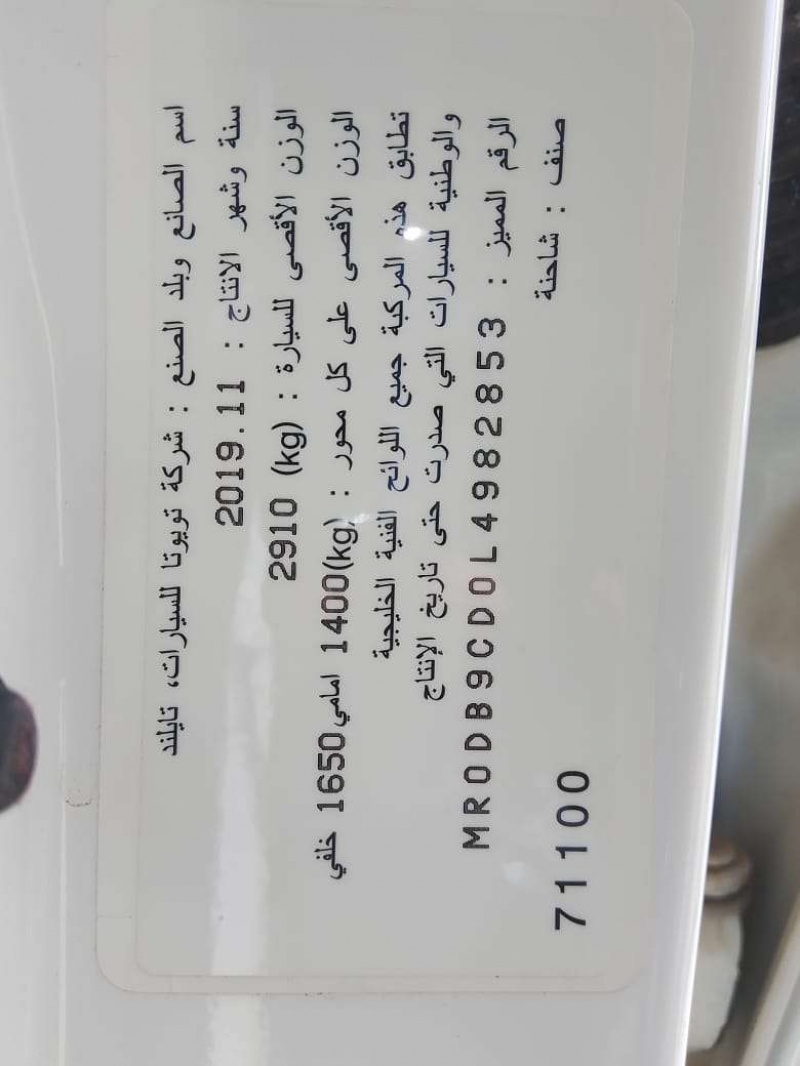 اسم الصانع وبلد الصنع : شركة تويوتا للسيارات، تايلند
سنة وشهر الانتاج : 2019.11
الوزن الأقصى للسيارة : (kg) 2910
الوزن الأقصى على كل محور : (kg)1400 امامي 1650 خلفي
تطابق هذه المركبة جميع اللوائح الفنية الخليجية
والوطنية للسيارات التي صدرت حتى تاريخ الإنتاج
الرقم المميز : MR0DB9CD0L4982853
صنف : شاحنة
71100